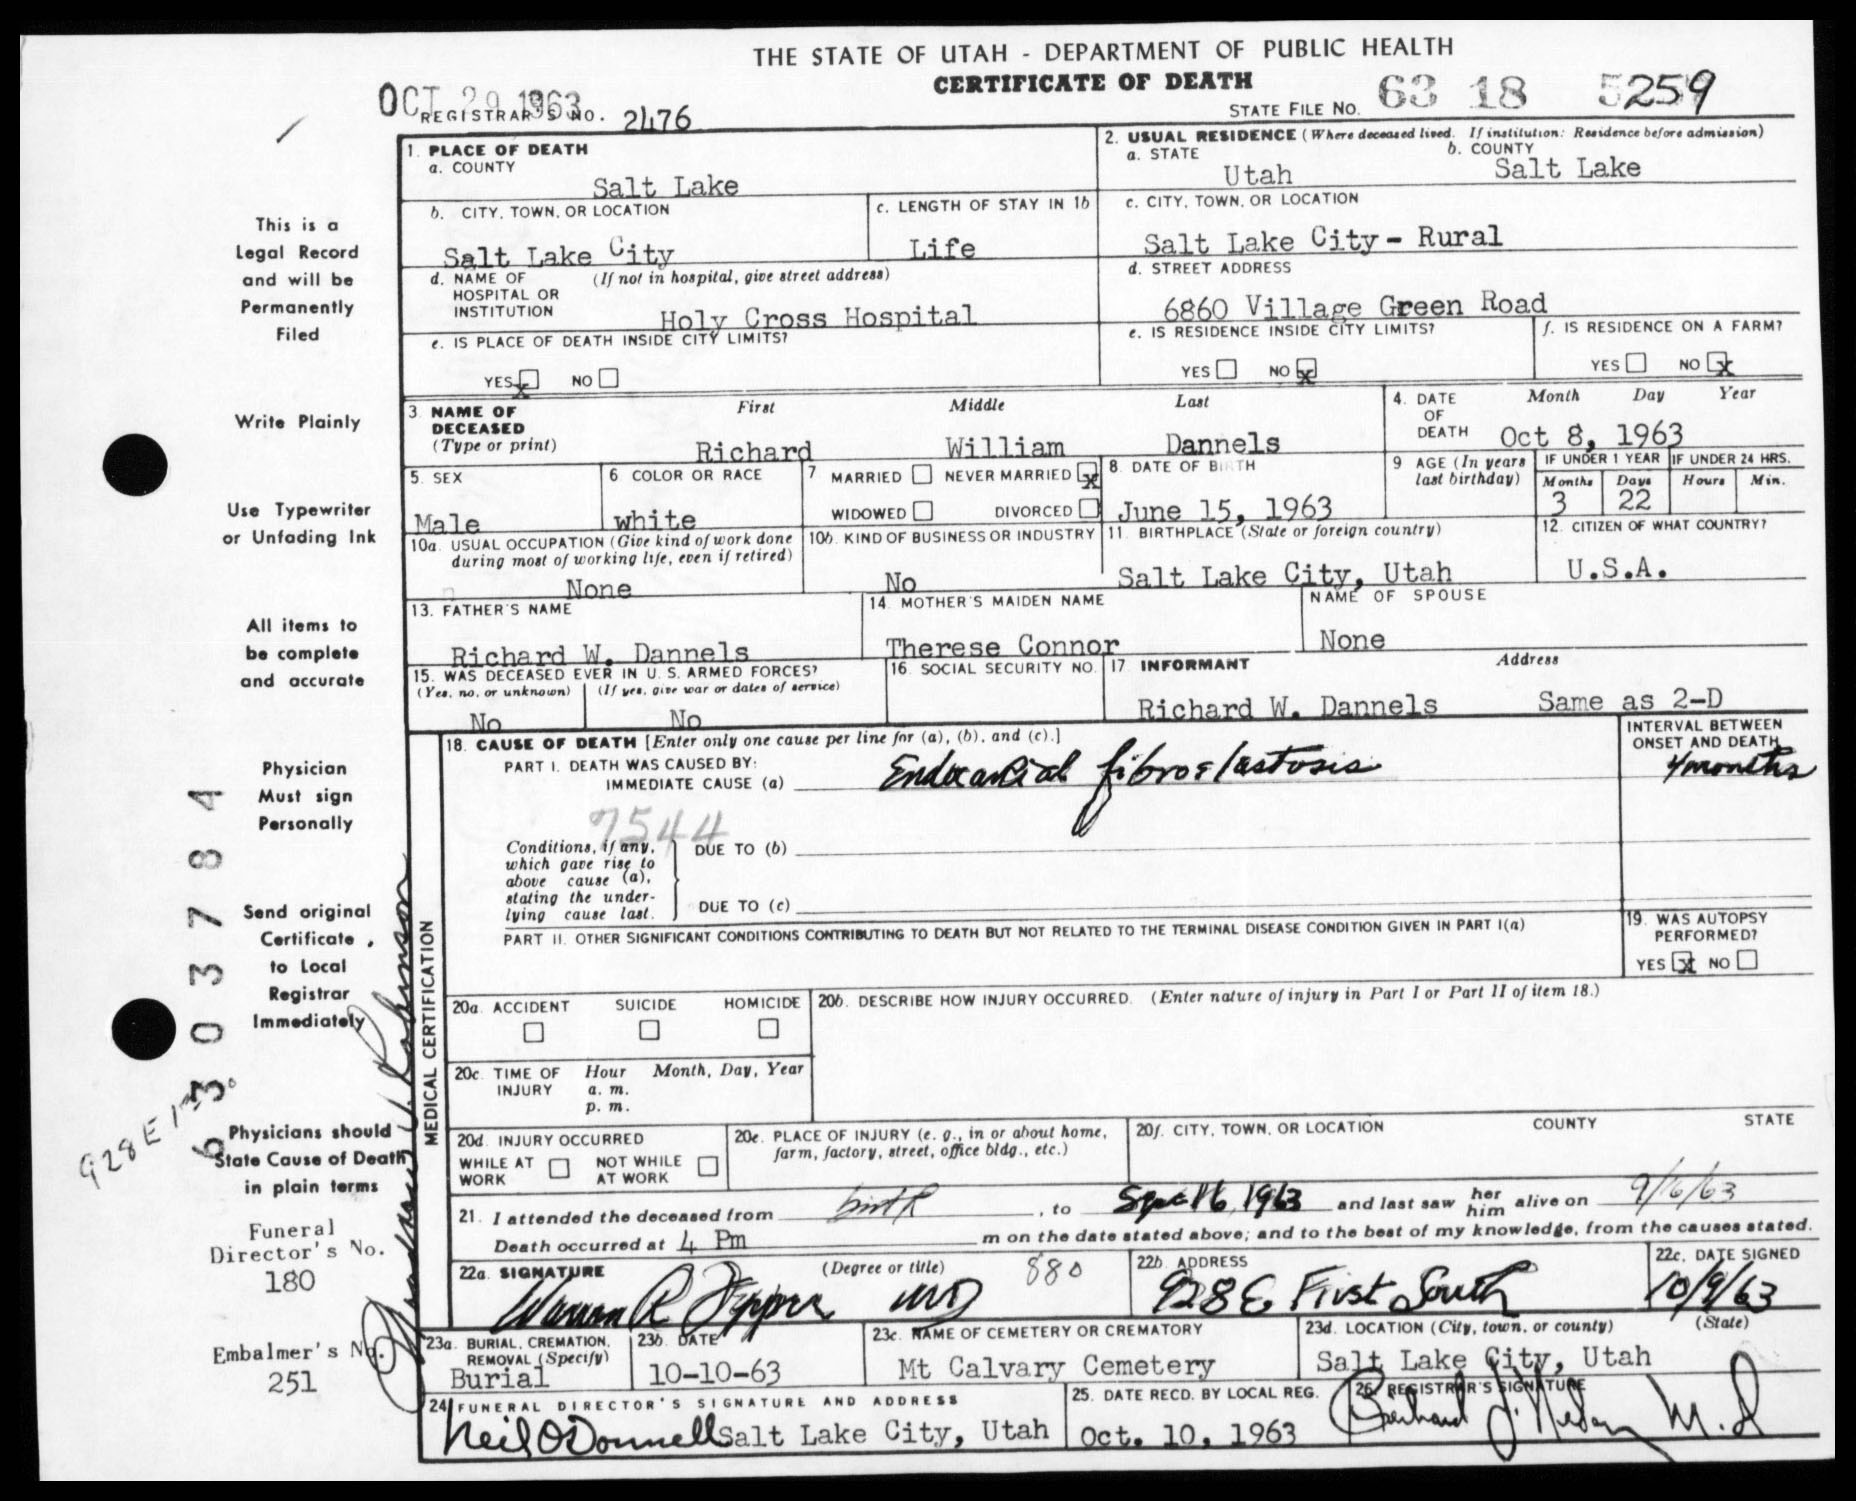 THE STATE OF UTAH - DEPARTMENT OF PUBLIC HEALTH
CERTIFICATE OF DEATH
OCT 29 1963
REGISTRAR'S NO. 2476
STATE FILE NO. 63 18 5259
1. PLACE OF DEATH
a. COUNTY
Salt Lake
2. USUAL RESIDENCE (Where deceased lived. If institution: Residence before admission)
a. STATE
Utah
b. COUNTY
Salt Lake
b. CITY, TOWN, OR LOCATION
Salt Lake City
c. LENGTH OF STAY IN 1b
Life
c. CITY, TOWN, OR LOCATION
Salt Lake City - Rural
d. NAME OF HOSPITAL OR INSTITUTION
(If not in hospital, give street address)
Holy Cross Hospital
d. STREET ADDRESS
6860 Village Green Road
e. IS PLACE OF DEATH INSIDE CITY LIMITS?
YES x NO
e. IS RESIDENCE INSIDE CITY LIMITS?
YES NO x
f. IS RESIDENCE ON A FARM?
YES NO x
3. NAME OF DECEASED
(Type or print)
First Middle Last
Richard William Dannels
4. DATE OF DEATH
Month Day Year
Oct 8, 1963
5. SEX
Male
6 COLOR OR RACE
white
7 MARRIED NEVER MARRIED x
WIDOWED DIVORCED
8. DATE OF BIRTH
June 15, 1963
9 AGE (In years last birthday)
IF UNDER 1 YEAR
Months Days
3 22
IF UNDER 24 HRS.
Hours Min.
10a. USUAL OCCUPATION (Give kind of work done during most of working life, even if retired)
None
10b. KIND OF BUSINESS OR INDUSTRY
No
11. BIRTHPLACE (State or foreign country)
Salt Lake City, Utah
12. CITIZEN OF WHAT COUNTRY?
U.S.A.
13. FATHER'S NAME
Richard W. Dannels
14. MOTHER'S MAIDEN NAME
Therese Connor
NAME OF SPOUSE
None
15. WAS DECEASED EVER IN U. S. ARMED FORCES?
(Yes, no, or unknown) (If yes, give war or dates of service)
No No
16. SOCIAL SECURITY NO.
17. INFORMANT Address
Richard W. Dannels Same as 2-D
MEDICAL CERTIFICATION
18. CAUSE OF DEATH [Enter only one cause per line for (a), (b), and (c).]
PART I. DEATH WAS CAUSED BY:
IMMEDIATE CAUSE (a) Endocardial fibroelastosis
INTERVAL BETWEEN ONSET AND DEATH
4 months
7544
Conditions, if any, which gave rise to above cause (a), stating the underlying cause last.
DUE TO (b)
DUE TO (c)
PART II. OTHER SIGNIFICANT CONDITIONS CONTRIBUTING TO DEATH BUT NOT RELATED TO THE TERMINAL DISEASE CONDITION GIVEN IN PART I(a)
19. WAS AUTOPSY PERFORMED?
YES x NO
20a. ACCIDENT SUICIDE HOMICIDE
20b. DESCRIBE HOW INJURY OCCURRED. (Enter nature of injury in Part I or Part II of item 18.)
20c. TIME OF INJURY
Hour Month, Day, Year
a. m.
p. m.
20d. INJURY OCCURRED
WHILE AT WORK NOT WHILE AT WORK
20e. PLACE OF INJURY (e. g., in or about home, farm, factory, street, office bldg., etc.)
20f. CITY, TOWN, OR LOCATION COUNTY STATE
21. I attended the deceased from birth, to Sept 16, 1963 and last saw her him alive on 9/16/63
Death occurred at 4 Pm m on the date stated above; and to the best of my knowledge, from the causes stated.
22a. SIGNATURE (Degree or title) 880
Warren R MD
22b. ADDRESS
928 E. First South
22c. DATE SIGNED
10/9/63
23a. BURIAL, CREMATION, REMOVAL (Specify)
Burial
23b. DATE
10-10-63
23c. NAME OF CEMETERY OR CREMATORY
Mt Calvary Cemetery
23d. LOCATION (City, town, or county) (State)
Salt Lake City, Utah
24 FUNERAL DIRECTOR'S SIGNATURE AND ADDRESS
Neil O'Donnell Salt Lake City, Utah
25. DATE RECD. BY LOCAL REG.
Oct. 10, 1963
26. REGISTRAR'S SIGNATURE
M.D
This is a
Legal Record
and will be
Permanently
Filed
Write Plainly
Use Typewriter
or Unfading Ink
All items to
be complete
and accurate
Physician
Must sign
Personally
Send original
Certificate,
to Local
Registrar
Immediately
Physicians should
State Cause of Death
in plain terms
Funeral
Director's No.
180
Embalmer's No.
251
6303784
928 E
Robinson